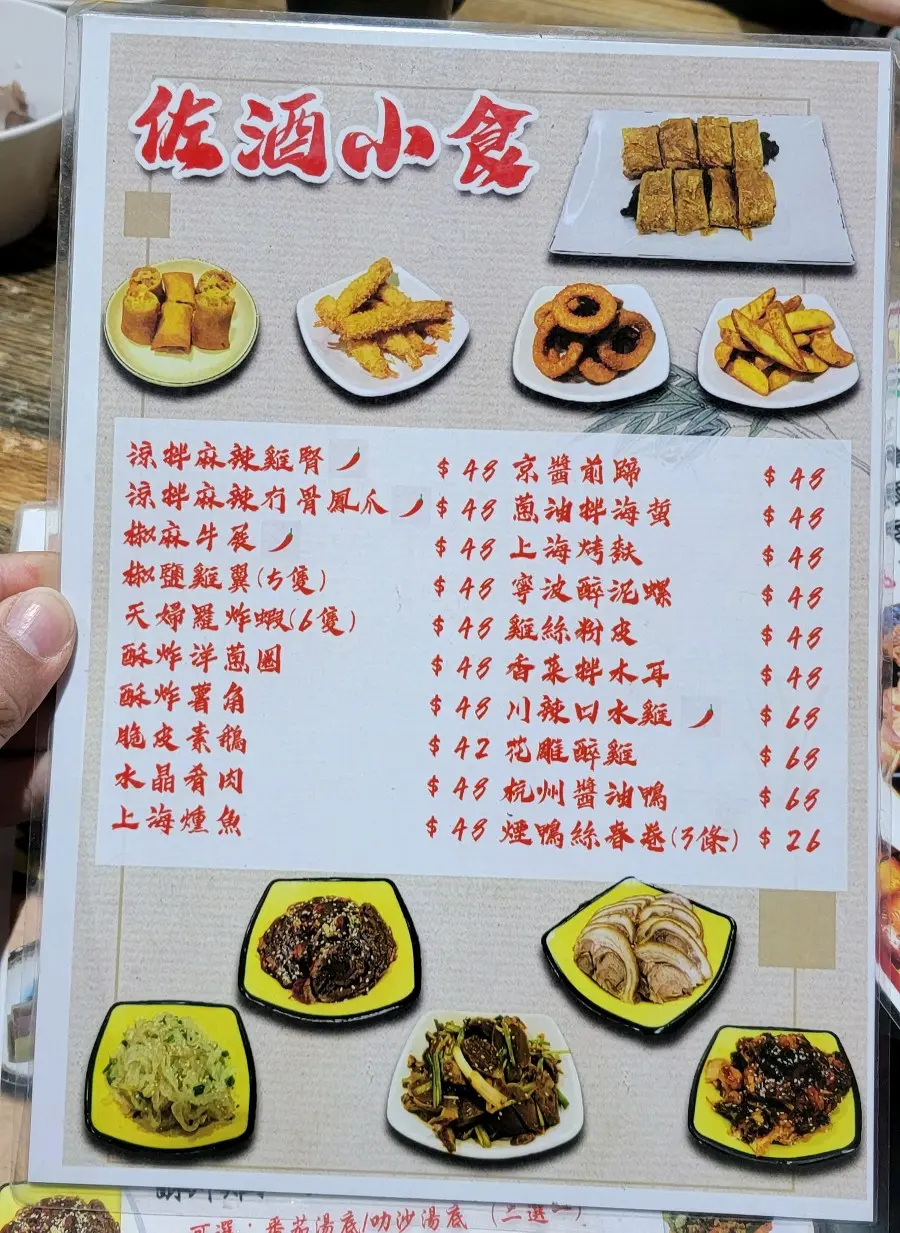 佐酒小食
涼拌麻辣雞腎 $48
涼拌麻辣冇骨鳳爪 $48
椒麻牛展 $48
椒鹽雞翼(5隻) $48
天婦羅炸蝦(6隻) $48
酥炸洋蔥圈 $48
酥炸薯角 $48
脆皮素鵝 $42
水晶肴肉 $48
上海燻魚 $48
京醬前蹄 $48
蔥油拌海蜇 $48
上海烤麩 $48
寧波醉泥螺 $48
雞絲粉皮 $48
香菜拌木耳 $48
川辣口水雞 $68
花雕醉雞 $68
杭州醬油鴨 $68
煙鴨絲春卷(3條) $26
可選：番茄湯底/叻沙湯底 (二選一)